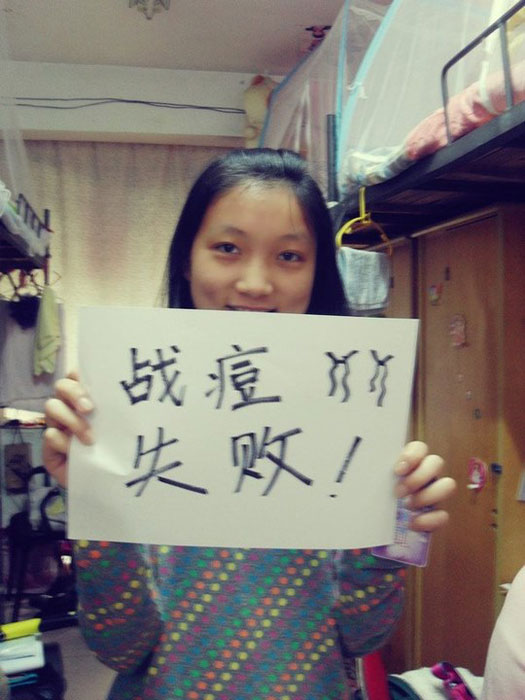 战痘
失败！